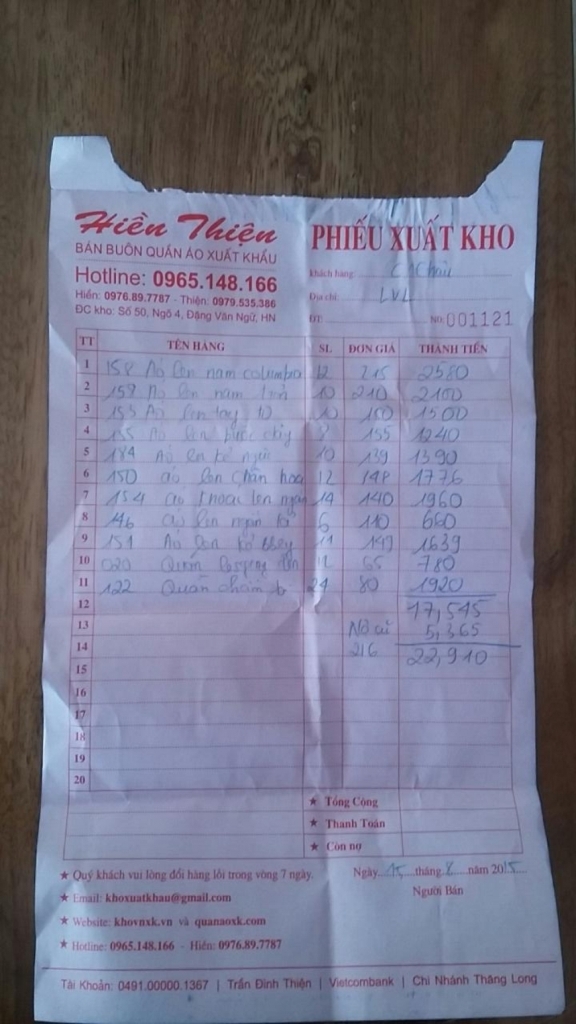 Hiền Thiện
BÁN BUÔN QUẦN ÁO XUẤT KHẨU
Hotline: 0965.148.166
Hiền: 0976.89.7787 - Thiện: 0979.535.386
ĐC kho: Số 50, Ngõ 4, Đặng Văn Ngữ, HN
PHIẾU XUẤT KHO
khách hàng:
Địa chỉ: LVL
ĐT: No: 001121
TT TÊN HÀNG SL ĐƠN GIÁ THÀNH TIỀN
1 158 Áo len nam columbo 12 215 2580
2 159 Áo len nam 10 210 2100
3 153 Áo len tay 10 150 1500
4 155 Áo len 8 155 1240
5 184 Áo len kẻ 10 139 1390
6 150 áo len chần hoa 12 148 1776
7 154 áo khoác len 14 140 1960
8 146 áo len ngắn 6 110 660
9 151 Áo len kẻ 11 149 1639
10 020 Quần 12 65 780
11 122 Quần 24 80 1920
12 17,545
13 Nợ cũ 5,365
14 216 22,910
15
16
17
18
19
20
★ Tổng Cộng
★ Thanh Toán
★ Còn nợ
★ Quý khách vui lòng đổi hàng lỗi trong vòng 7 ngày.
Ngày 15 tháng 8 năm 2015
Người Bán
★ Email: khoxuatkhau@gmail.com
★ Website: khovnxk.vn và quanaoxk.com
★ Hotline: 0965.148.166 - Hiền: 0976.89.7787
Tài Khoản: 0491.00000.1367 | Trần Đình Thiện | Vietcombank | Chi Nhánh Thăng Long